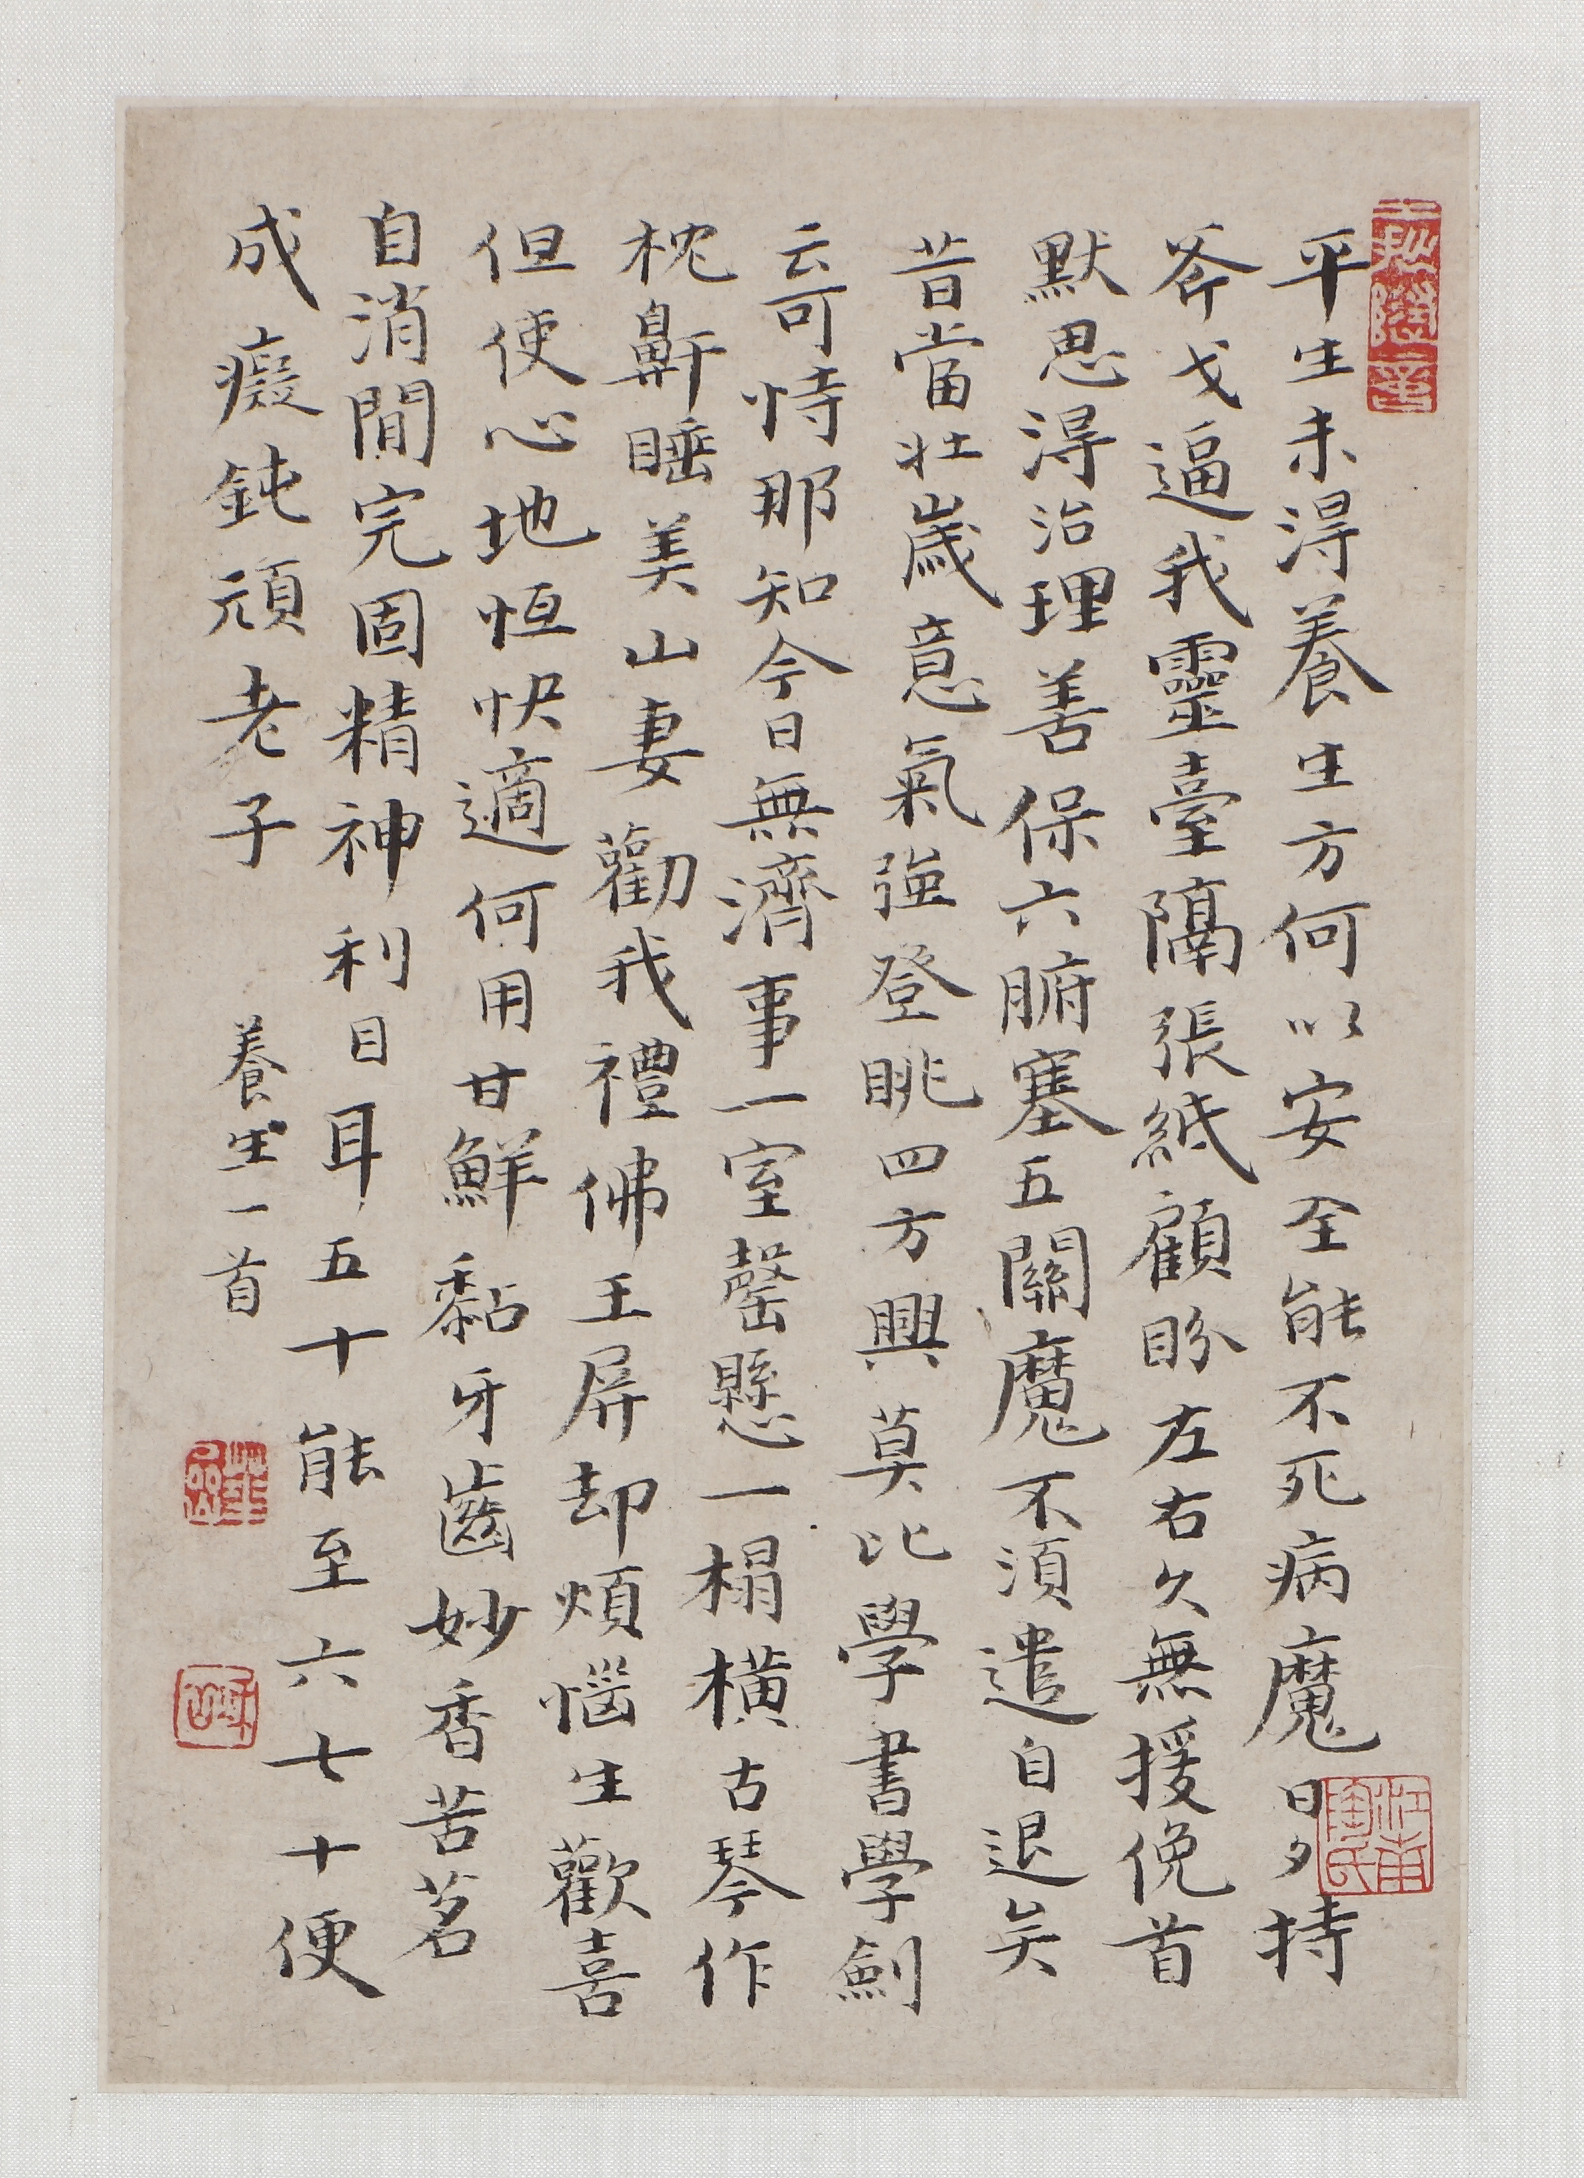 平生未得養生方何以安全能不死病魔日夕持
斧戈逼我靈臺隔張紙顧盼左右久無援俛首
默思得治理善保六腑塞五關魔不須遣自退矣
昔當壯歲意氣強登眺四方興莫比學書學劍
云可恃那知今日無濟事一室罄懸一榻橫古琴作
枕鼻鼾睡美山妻勸我禮佛王屏却煩惱生歡喜
但使心地恒快適何用甘鮮黏牙齒妙香苦茗
自消閒完固精神利目耳五十能至六七十便
成癡鈍頑老子
養生一首